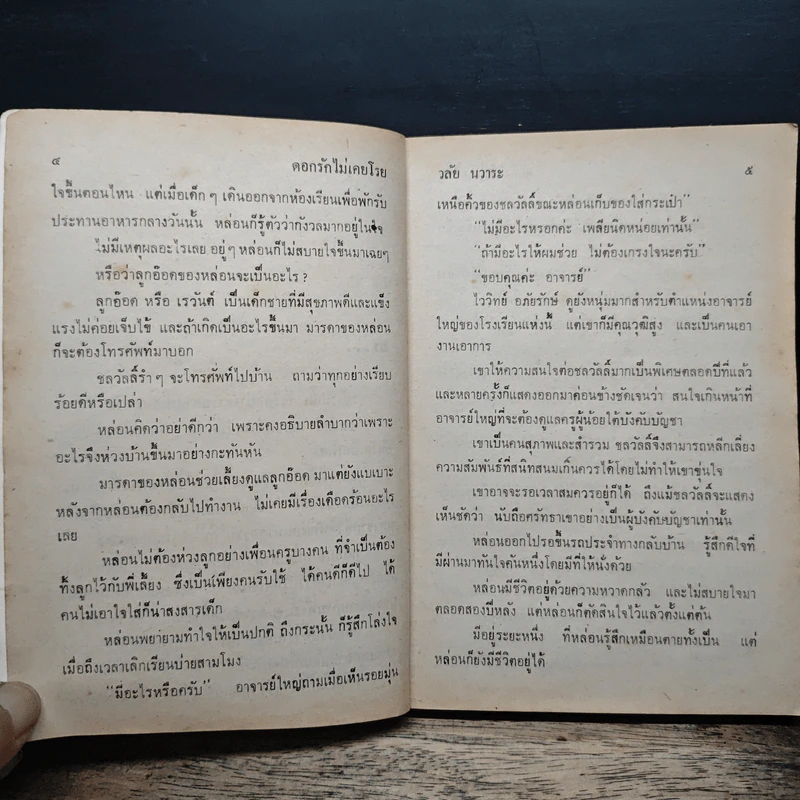 ๔ ดอกรักไม่เคยโรย
ใจขึ้นตอนไหน แต่เมื่อเด็ก ๆ เดินออกจากห้องเรียนเพื่อพักรับ
ประทานอาหารกลางวันนั้น หล่อนก็รู้ตัวว่ากังวลมากอยู่ในใจ
ไม่มีเหตุผลอะไรเลย อยู่ ๆ หล่อนก็ไม่สบายใจขึ้นมาเฉยๆ
หรือว่าลูกอ๊อดของหล่อนจะเป็นอะไร ?
ลูกอ๊อด หรือ เรวันต์ เป็นเด็กชายที่มีสุขภาพดีและแข็ง
แรงไม่ค่อยเจ็บไข้ และถ้าเกิดเป็นอะไรขึ้นมา มารดาของหล่อน
ก็จะต้องโทรศัพท์มาบอก
ชลวัลลิ์รำ ๆ จะโทรศัพท์ไปบ้าน ถามว่าทุกอย่างเรียบ
ร้อยดีหรือเปล่า
หล่อนคิดว่าอย่าดีกว่า เพราะคงอธิบายลำบากว่าเพราะ
อะไรจึงห่วงบ้านขึ้นมาอย่างกะทันหัน
มารดาของหล่อนช่วยเลี้ยงดูแลลูกอ๊อด มาแต่ยังแบเบาะ
หลังจากหล่อนต้องกลับไปทำงาน ไม่เคยมีเรื่องเดือดร้อนอะไร
เลย
หล่อนไม่ต้องห่วงลูกอย่างเพื่อนครูบางคน ที่จำเป็นต้อง
ทิ้งลูกไว้กับพี่เลี้ยง ซึ่งเป็นเพียงคนรับใช้ ได้คนดีก็ดีไป ได้
คนไม่เอาใจใส่ก็น่าสงสารเด็ก
หล่อนพยายามทำใจให้เป็นปกติ ถึงกระนั้น ก็รู้สึกโล่งใจ
เมื่อถึงเวลาเลิกเรียนบ่ายสามโมง
"มีอะไรหรือครับ" อาจารย์ใหญ่ถามเมื่อเห็นรอยมุ่น
วลัย นวาระ ๕
เหนือคิ้วของชลวัลลิ์ขณะหล่อนเก็บของใส่กระเป๋า"
"ไม่มีอะไรหรอกค่ะ เพลียนิดหน่อยเท่านั้น"
"ถ้ามีอะไรให้ผมช่วย ไม่ต้องเกรงใจนะครับ"
"ขอบคุณค่ะ อาจารย์"
ไววิทย์ อภัยรักษ์ ดูยังหนุ่มมากสำหรับตำแหน่งอาจารย์
ใหญ่ของโรงเรียนแห่งนี้ แต่เขาก็มีคุณวุฒิสูง และเป็นคนเอา
งานเอาการ
เขาให้ความสนใจต่อชลวัลลิ์มากเป็นพิเศษตลอดปีที่แล้ว
และหลายครั้งก็แสดงออกมาค่อนข้างชัดเจนว่า สนใจเกินหน้าที่
อาจารย์ใหญ่ที่จะต้องดูแลครูผู้น้อยใต้บังคับบัญชา
เขาเป็นคนสุภาพและสำรวม ชลวัลลิ์จึงสามารถหลีกเลี่ยง
ความสัมพันธ์ที่สนิทสนมเกินควรได้โดยไม่ทำให้เขาขุ่นใจ
เขาอาจจะรอเวลาสมควรอยู่ก็ได้ ถึงแม้ชลวัลลิ์จะแสดง
เห็นชัดว่า นับถือศรัทธาเขาอย่างเป็นผู้บังคับบัญชาเท่านั้น
หล่อนออกไปรอขึ้นรถประจำทางกลับบ้าน รู้สึกดีใจที่
มีผ่านมาทันใจคันหนึ่งโดยมีที่ให้นั่งด้วย
หล่อนมีชีวิตอยู่ด้วยความหวาดกลัว และไม่สบายใจมา
ตลอดสองปีหลัง แต่หล่อนก็ตัดสินใจไว้แล้วตั้งแต่ต้น
มีอยู่ระยะหนึ่ง ที่หล่อนรู้สึกเหมือนตายทั้งเป็น แต่
หล่อนก็ยังมีชีวิตอยู่ได้